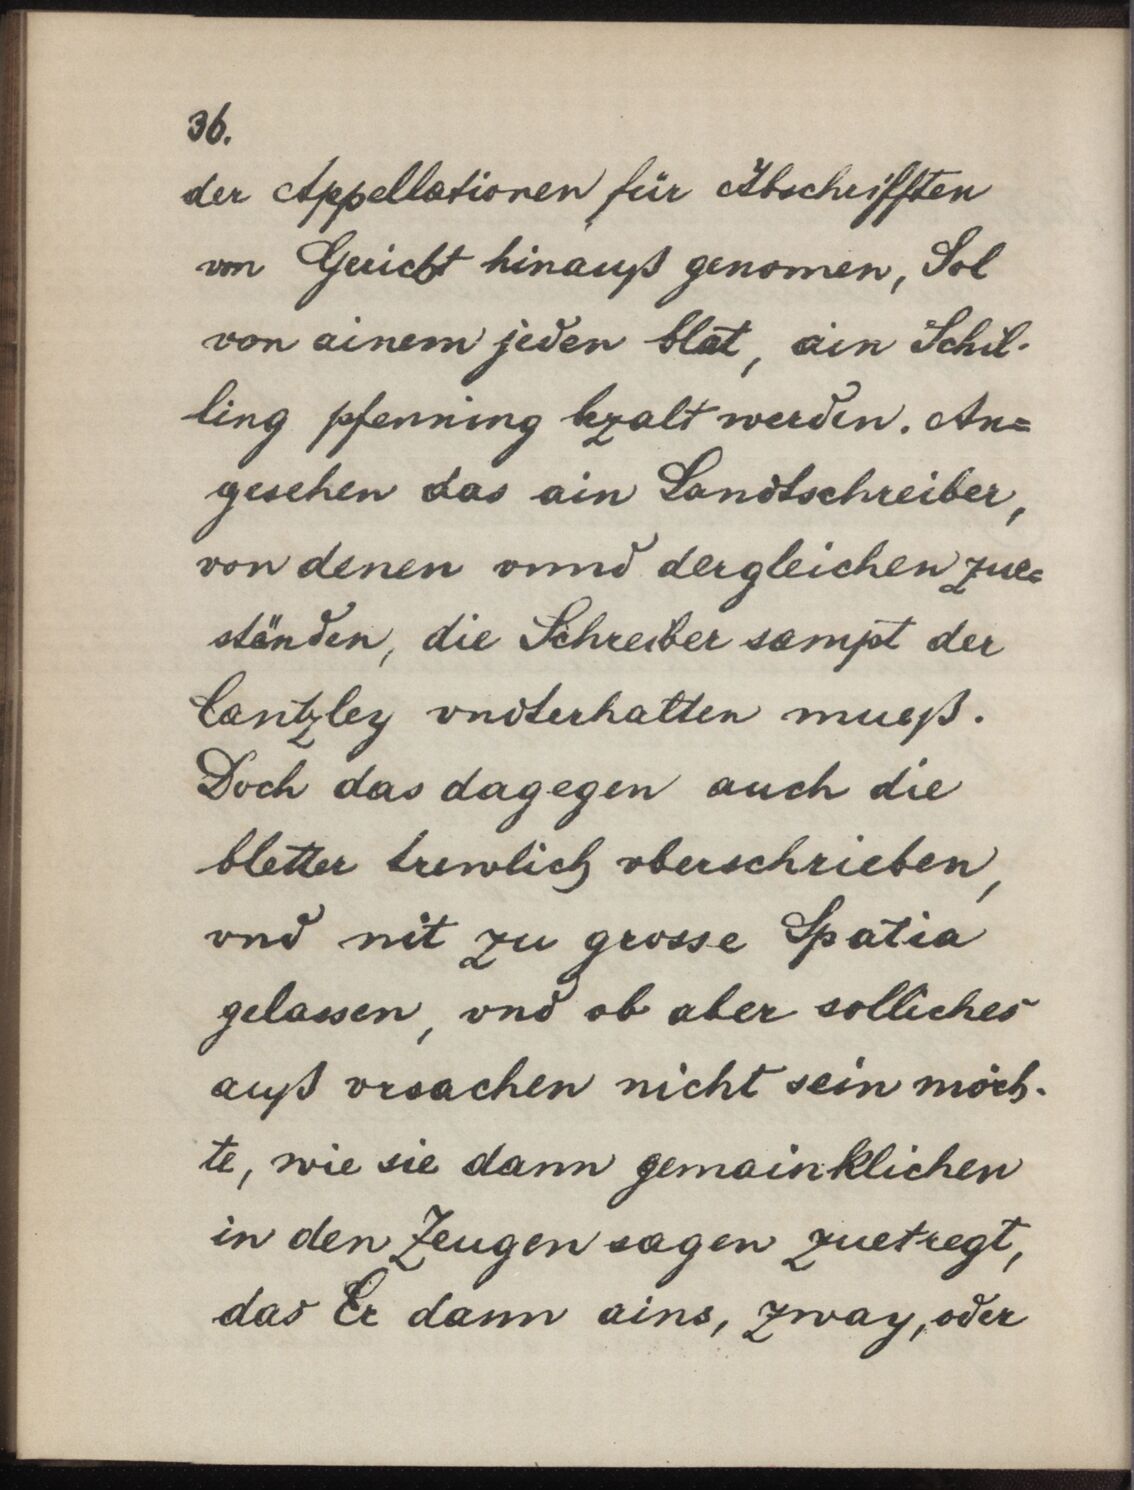 36.
der Appellationen für Abschrifften
von Gericht hinauß genomen, Sol
von ainem jeden blat, ain Schil-
ling pfenning bzalt werden. An=
gesehen das ain Landtschreiber,
von denen vnnd dergleichen zue=
ständen, die Schreiber sampt der
Cantzley vndterhalten mueß.
Doch das dagegen auch die
bletter trewlich vberschrieben,
vnd nit zu grosse Spatia
gelassen, vnd ob aber solliches
auß vrsachen nicht sein möch-
te, wie sie dann gemainklichen
in den Zeugen sagen zuetregt,
das Er dann ains, zway, oder